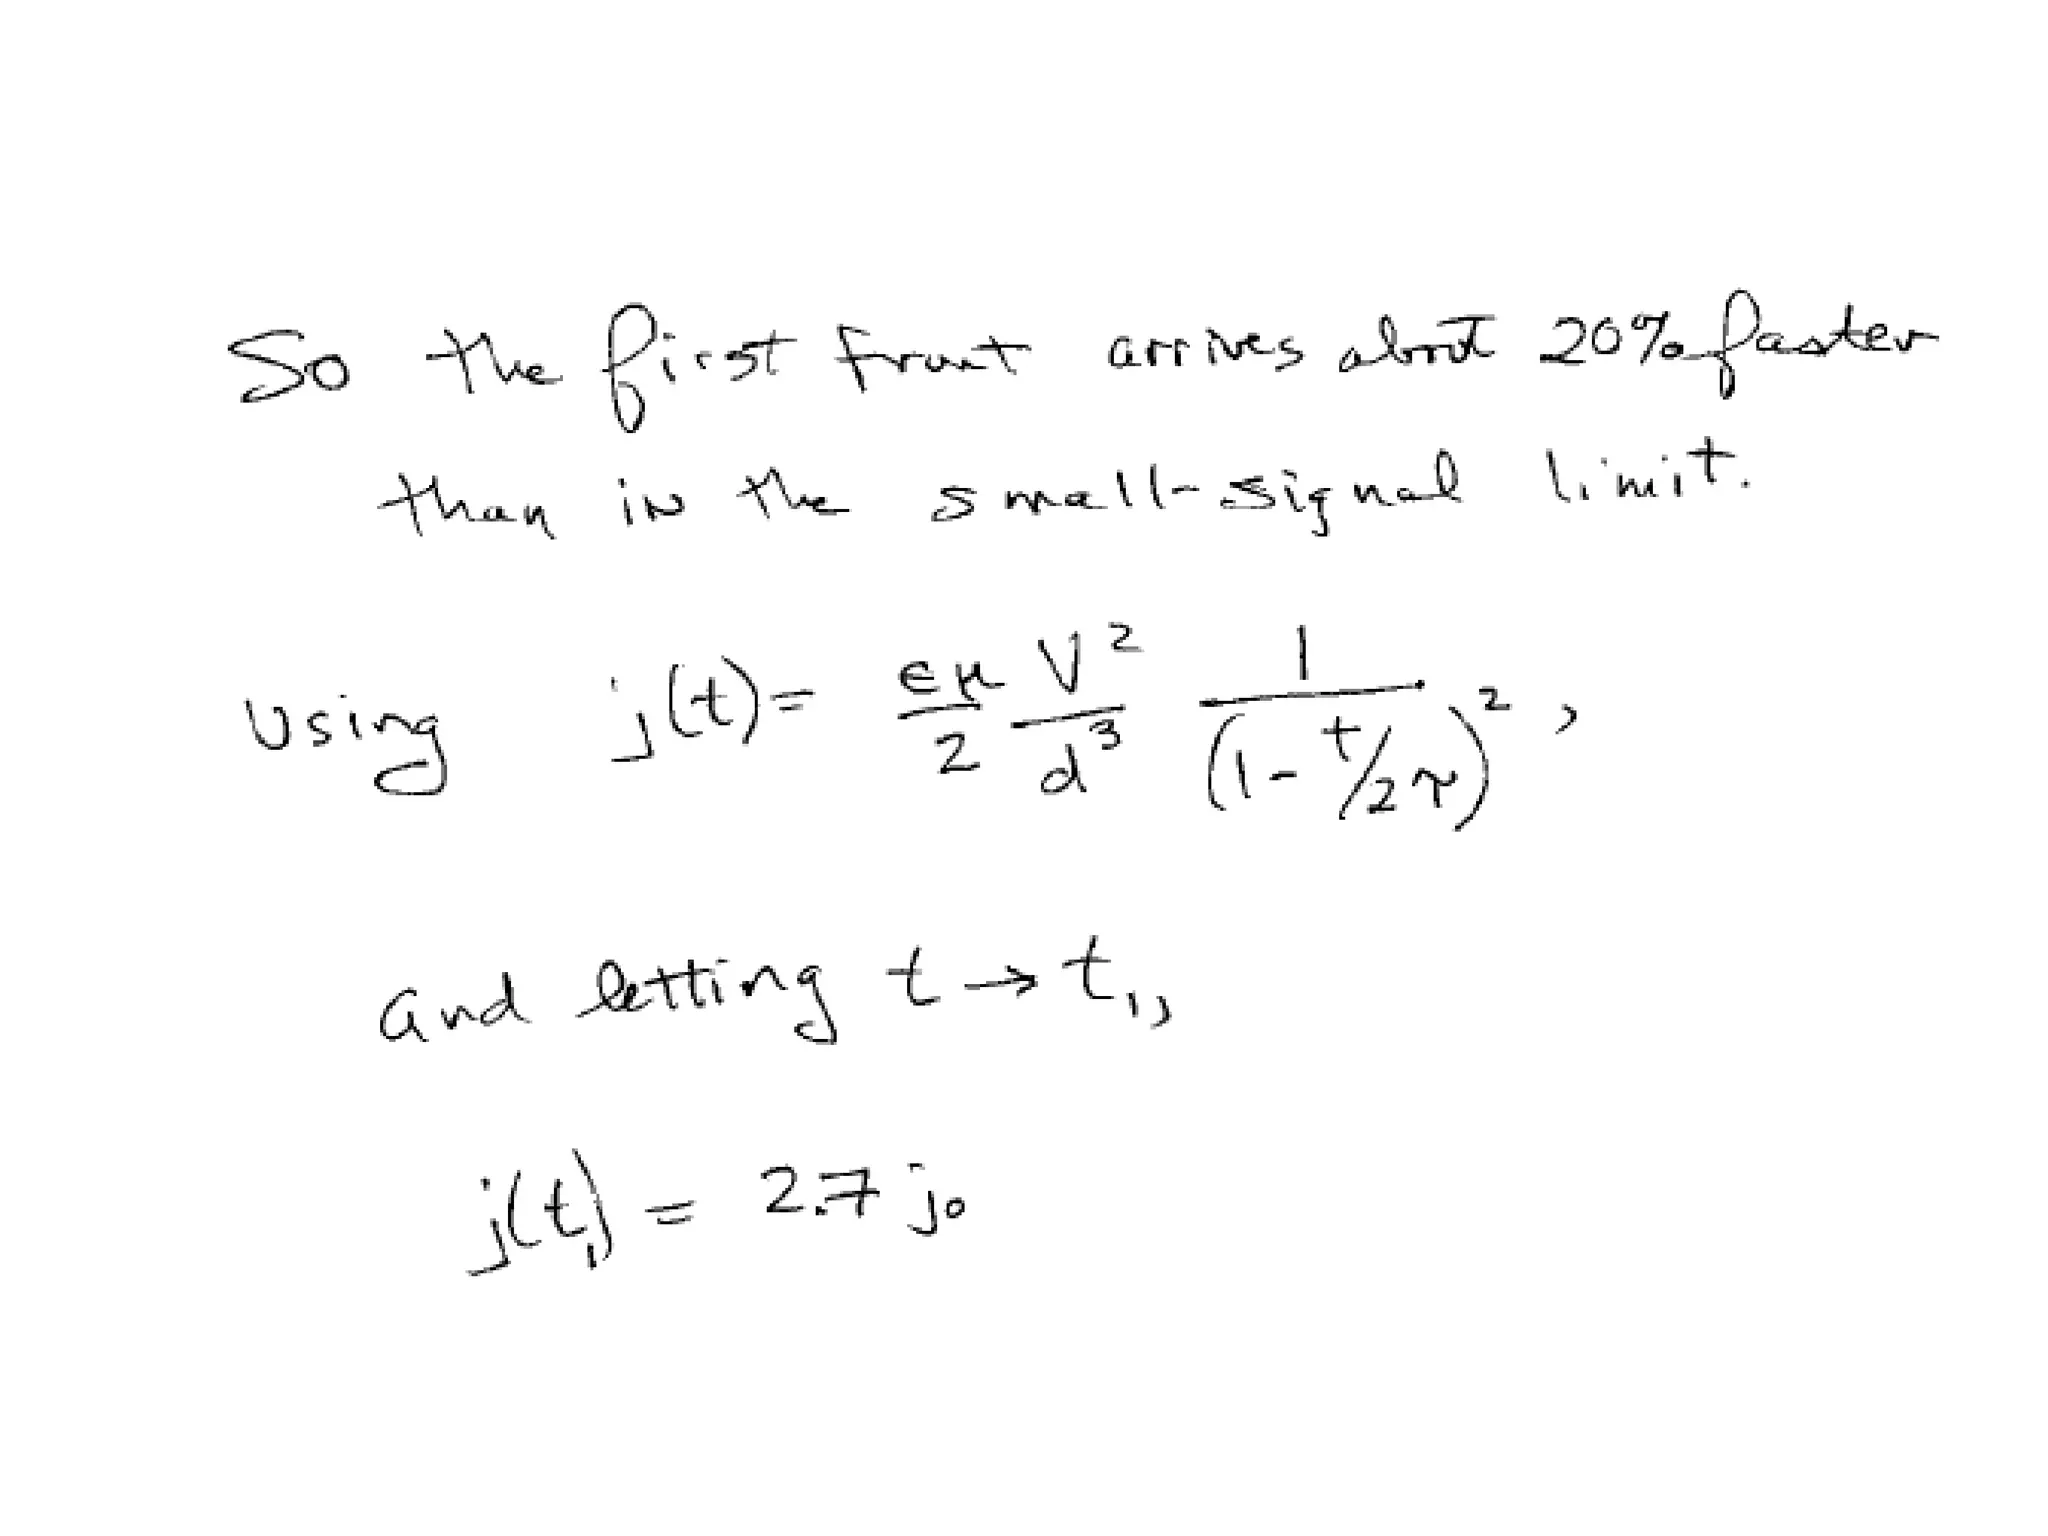 So the first front arrives about 20% faster
than in the small-signal limit.
Using j(t) = εμ/2 V²/d³ 1/(1 - t/2τ)²,
and letting t → t₁,
j(t₁) = 2.7 j₀